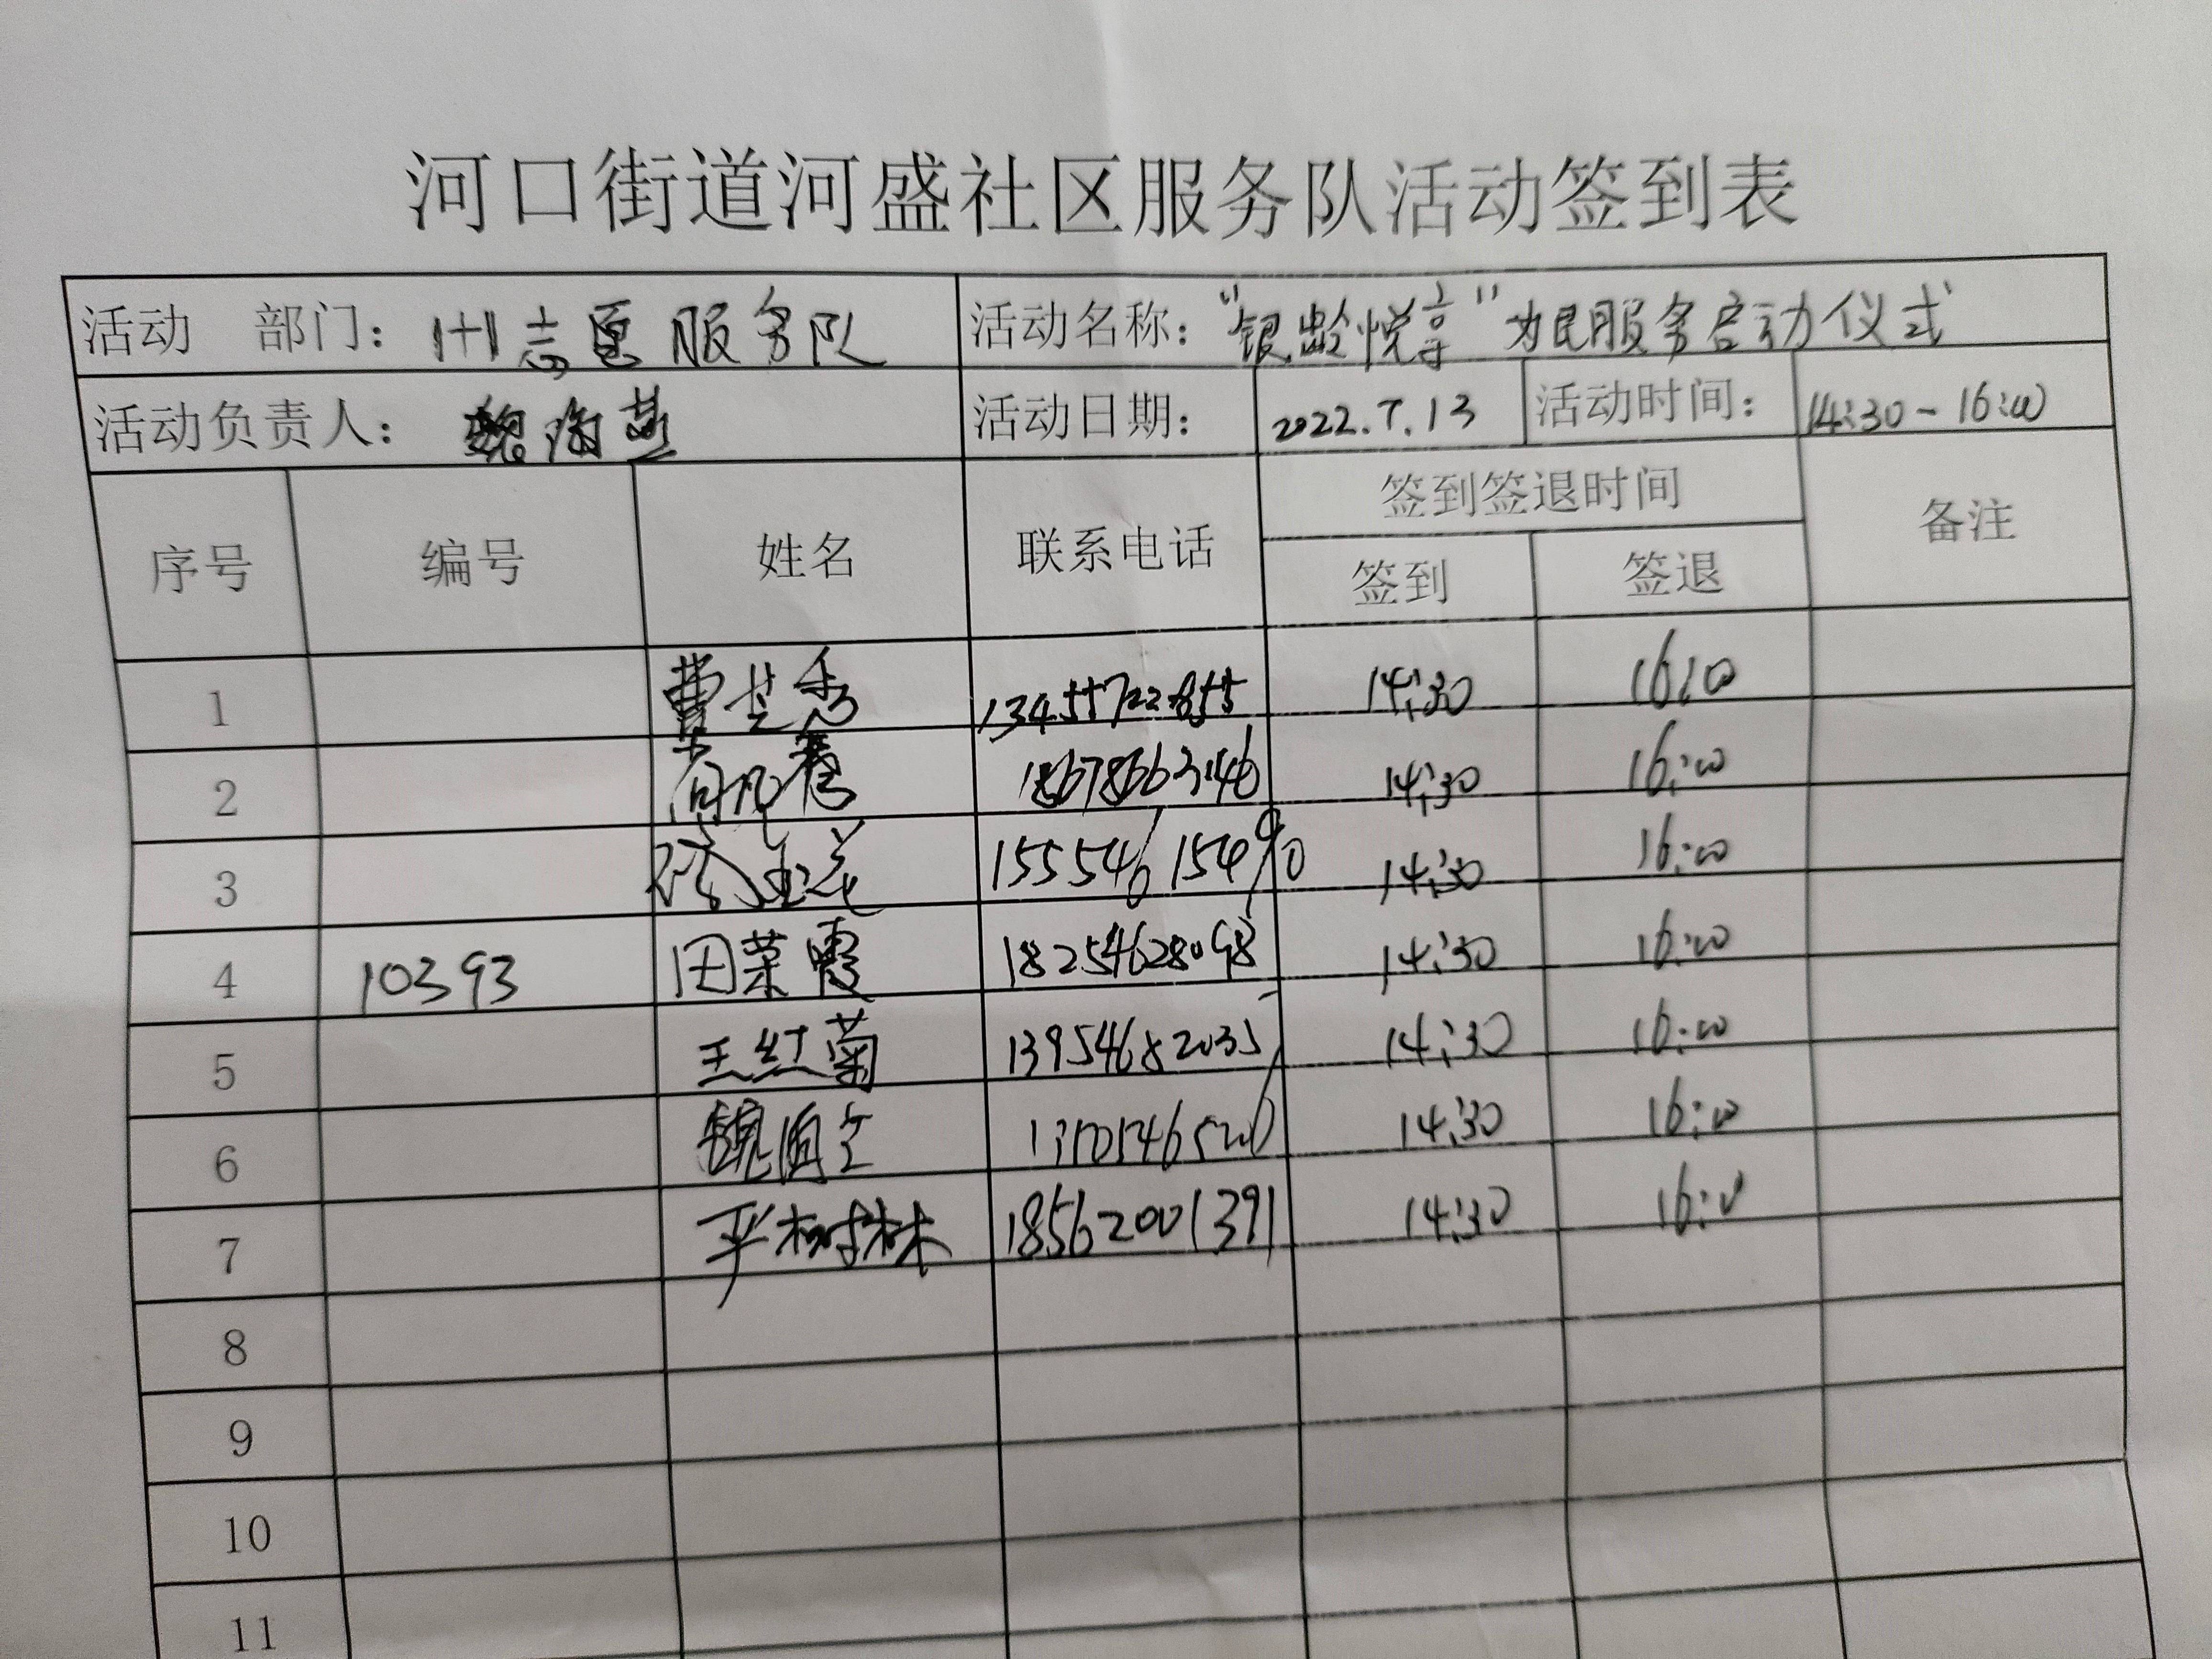 河口街道河盛社区服务队活动签到表
活动 部门：1+1志愿服务队 活动名称："银龄悦享"为民服务启动仪式
活动负责人：魏海燕 活动日期：2022.7.13 活动时间：14:30-16:00
序号 编号 姓名 联系电话 签到签退时间 备注
签到 签退
1 曹芝香 13455722855 14:30 16:00
2 18678663146 14:30 16:00
3 14:30 16:00
4 10393 田荣霞 18254628098 14:30 16:00
5 王红菊 13954682035 14:30 16:00
6 14:30 16:00
7 平树林 18562001391 14:30 16:00
8
9
10
11